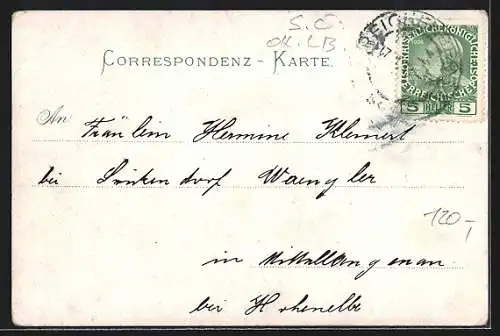 S.Č.
OK. LB
REICHEN
CORRESPONDENZ - KARTE.
KAISERLICHE KÖNIGLICHE
ÖSTERREICHISCHE
5 HELLER 5
An
Fräulein Hermine Klemert
bei
120,-
in Mittellangenau
bei Hohenelbe